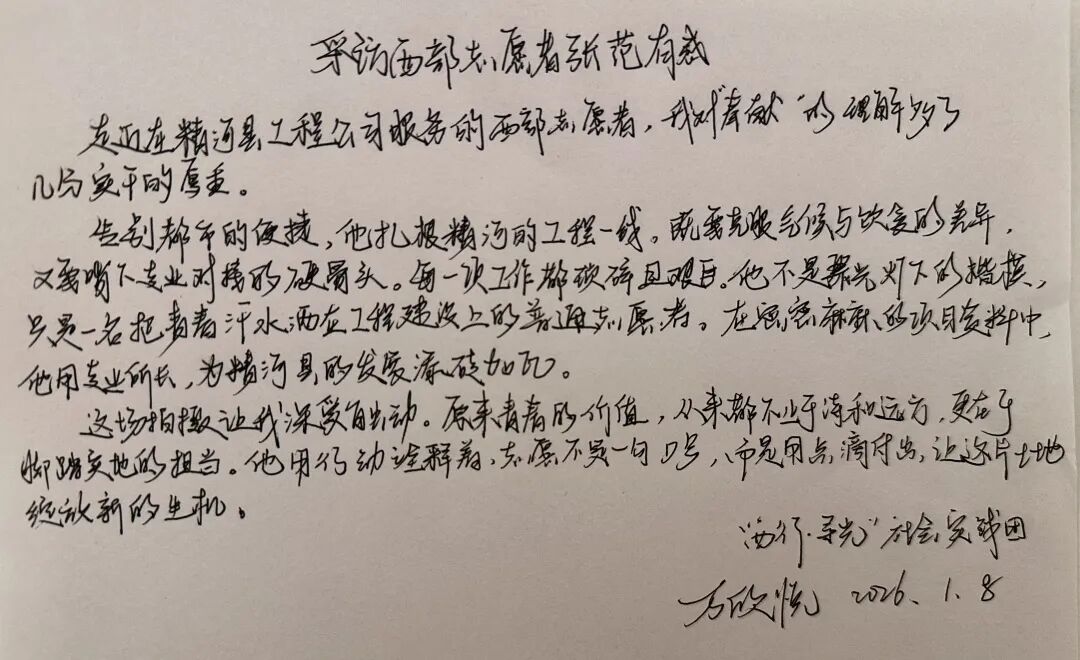 采访西部志愿者张范有感
走近在精河县工程公司服务的西部志愿者，我对“奉献”的理解多了
几分实干的厚重。
告别都市的便捷，他扎根精河的工程一线。既要克服气候与饮食的差异，
又要啃下专业对接的硬骨头。每一次工作都琐碎且艰巨。他不是聚光灯下的楷模，
只是一名把青春汗水洒在工程建设上的普通志愿者。在密密麻麻的项目资料中，
他用专业所长，为精河县的发展添砖加瓦。
这场拍摄让我深受触动。原来青春的价值，从来都不止于诗和远方，更在于
脚踏实地的担当。他用行动诠释着，志愿不是一句口号，而是用点滴付出，让这片土地
绽放新的生机。
“西行·寻光”社会实践团
方欣悦 2026.1.8